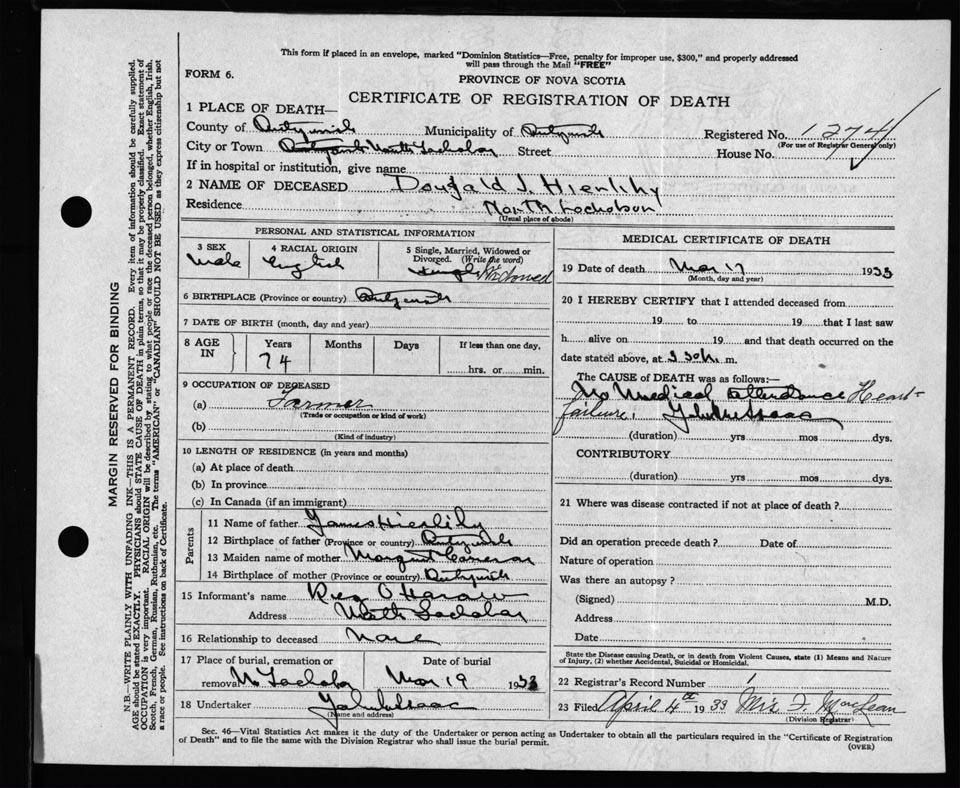 This form if placed in an envelope, marked "Dominion Statistics—Free, penalty for improper use, $300," and properly addressed
will pass through the Mail "FREE"
FORM 6.
PROVINCE OF NOVA SCOTIA
CERTIFICATE OF REGISTRATION OF DEATH
1 PLACE OF DEATH—
County of Antigonish Municipality of Antigonish Registered No. 1274
(For use of Registrar General only)
City or Town North Lochaber Street House No.
If in hospital or institution, give name
2 NAME OF DECEASED Dougald J. Hierlihy
Residence North Lochaber
(Usual place of abode)
PERSONAL AND STATISTICAL INFORMATION
3 SEX Male
4 RACIAL ORIGIN English
5 Single, Married, Widowed or Divorced. (Write the word) Single Widowed
6 BIRTHPLACE (Province or country) Antigonish
7 DATE OF BIRTH (month, day and year)
8 AGE IN Years Months Days If less than one day,
74 hrs. or min.
9 OCCUPATION OF DECEASED
(a) Farmer
(Trade or occupation or kind of work)
(b)
(Kind of industry)
10 LENGTH OF RESIDENCE (in years and months)
(a) At place of death
(b) In province
(c) In Canada (if an immigrant)
Parents
11 Name of father James Hierlihy
12 Birthplace of father (Province or country) Antigonish
13 Maiden name of mother Margaret Cameron
14 Birthplace of mother (Province or country) Antigonish
15 Informant's name
Address North Lochaber
16 Relationship to deceased None
17 Place of burial, cremation or Date of burial
removal N. Lochaber Mar 19 1933
18 Undertaker
(Name and address)
MEDICAL CERTIFICATE OF DEATH
19 Date of death Mar 17 1933
(Month, day and year)
20 I HEREBY CERTIFY that I attended deceased from
19 to 19 that I last saw
h alive on 19 and that death occurred on the
date stated above, at m.
The CAUSE OF DEATH was as follows:—
No Medical attendance Heart-
failure,
(duration) yrs mos dys.
CONTRIBUTORY
(duration) yrs mos dys.
21 Where was disease contracted if not at place of death?
Did an operation precede death? Date of
Nature of operation
Was there an autopsy?
(Signed) M.D.
Address
Date
State the Disease causing Death, or in death from Violent Causes, state (1) Means and Nature
of Injury, (2) whether Accidental, Suicidal or Homicidal.
22 Registrar's Record Number 1
23 Filed April 4th 1933 Mrs. F. MacLean
(Division Registrar)
Sec. 46—Vital Statistics Act makes it the duty of the Undertaker or person acting as Undertaker to obtain all the particulars required in the "Certificate of Registration
of Death" and to file the same with the Division Registrar who shall issue the burial permit.
(OVER)
MARGIN RESERVED FOR BINDING
N.B.—WRITE PLAINLY WITH UNFADING INK—THIS IS A PERMANENT RECORD. Every item of information should be carefully supplied.
AGE should be stated EXACTLY. PHYSICIANS should STATE CAUSE OF DEATH in plain terms, so that it may be properly classified. Exact statement of
OCCUPATION is very important. RACIAL ORIGIN will be described by stating to what people or race the deceased person belonged, whether English, Irish,
Scotch, French, German, Russian, Ruthenian, etc. The terms "AMERICAN" or "CANADIAN" SHOULD NOT BE USED as they express citizenship but not
a race or people. See instructions on back of Certificate.